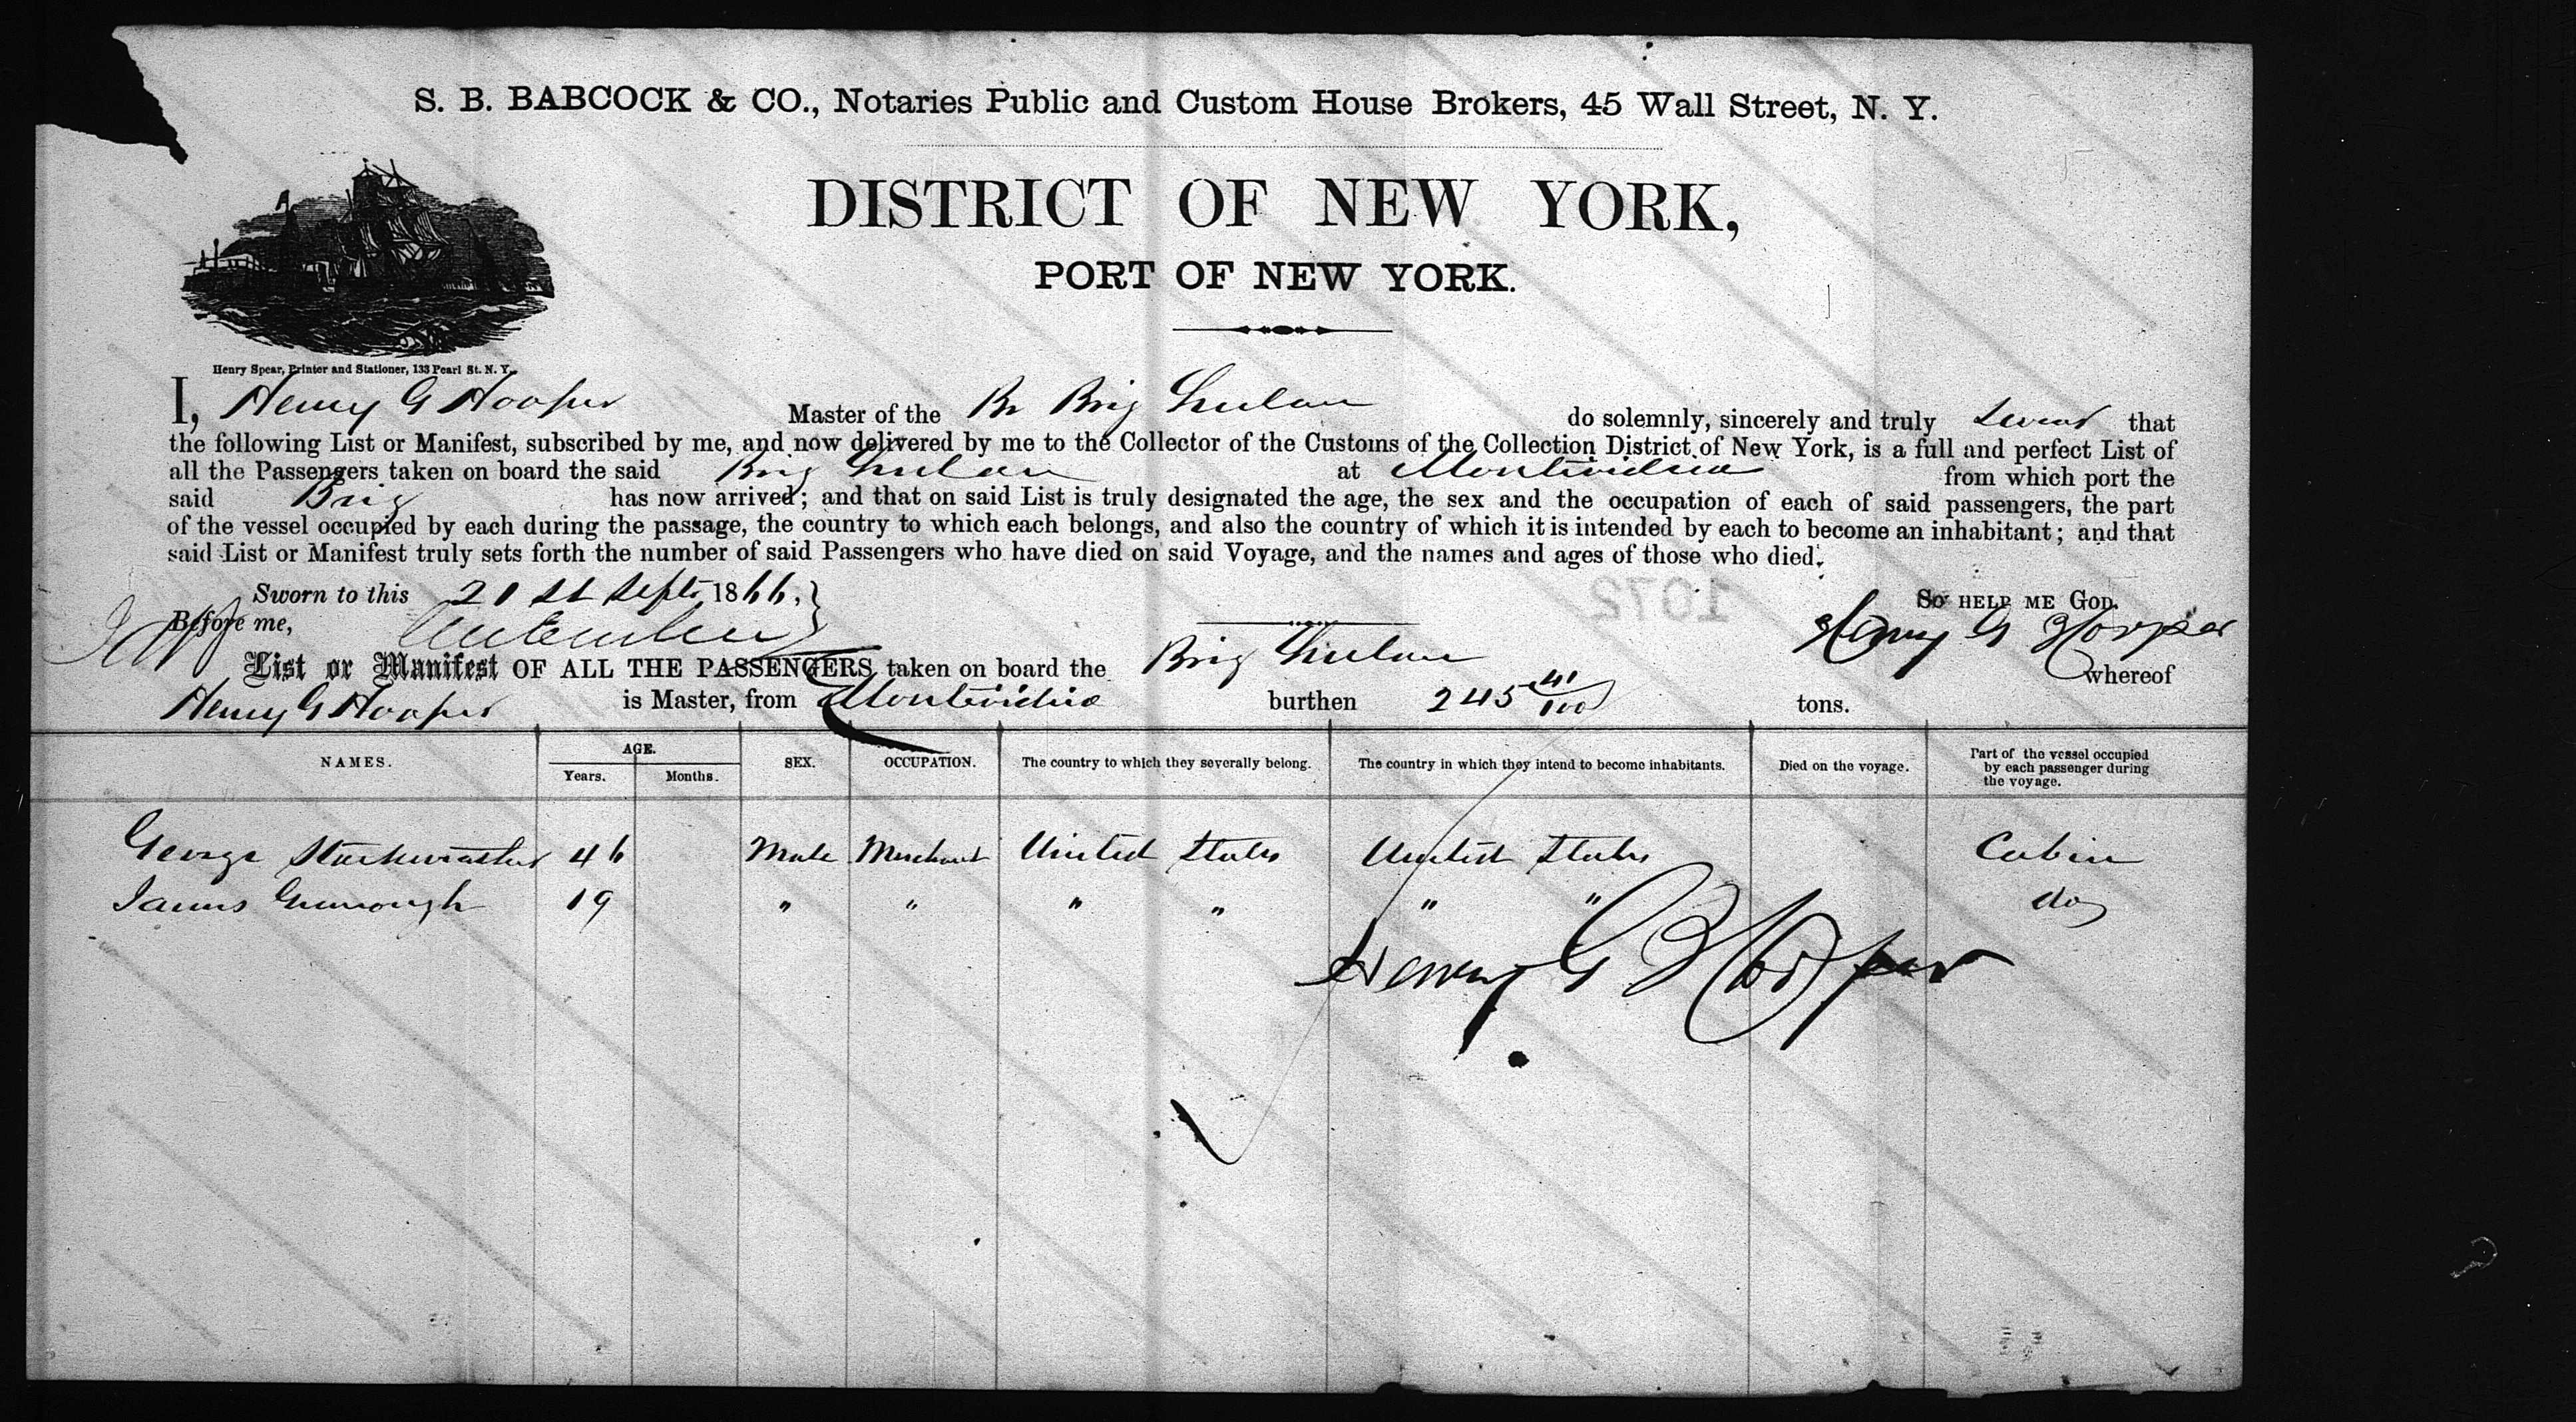 S. B. BABCOCK & CO., Notaries Public and Custom House Brokers, 45 Wall Street, N. Y.
DISTRICT OF NEW YORK,
PORT OF NEW YORK.
Henry Spear, Printer and Stationer, 133 Pearl St. N. Y.
I, Henry G Hooper Master of the Br Brig do solemnly, sincerely and truly swear that
the following List or Manifest, subscribed by me, and now delivered by me to the Collector of the Customs of the Collection District of New York, is a full and perfect List of
all the Passengers taken on board the said Brig at Montevideo from which port the
said Brig has now arrived; and that on said List is truly designated the age, the sex and the occupation of each of said passengers, the part
of the vessel occupied by each during the passage, the country to which each belongs, and also the country of which it is intended by each to become an inhabitant; and that
said List or Manifest truly sets forth the number of said Passengers who have died on said Voyage, and the names and ages of those who died.
Sworn to this 21st Sept 1866. } So HELP ME GOD.
1072
Before me, Henry G Hooper
List or Manifest OF ALL THE PASSENGERS taken on board the Brig whereof
Henry G Hooper is Master, from Montevideo burthen 245 41/100 tons.
NAMES. AGE. Years. Months. SEX. OCCUPATION. The country to which they severally belong. The country in which they intend to become inhabitants. Died on the voyage. Part of the vessel occupied by each passenger during the voyage.
George 46 Male Merchant United States United States Cabin
James 19 " " " " " " do
Henry G Hooper